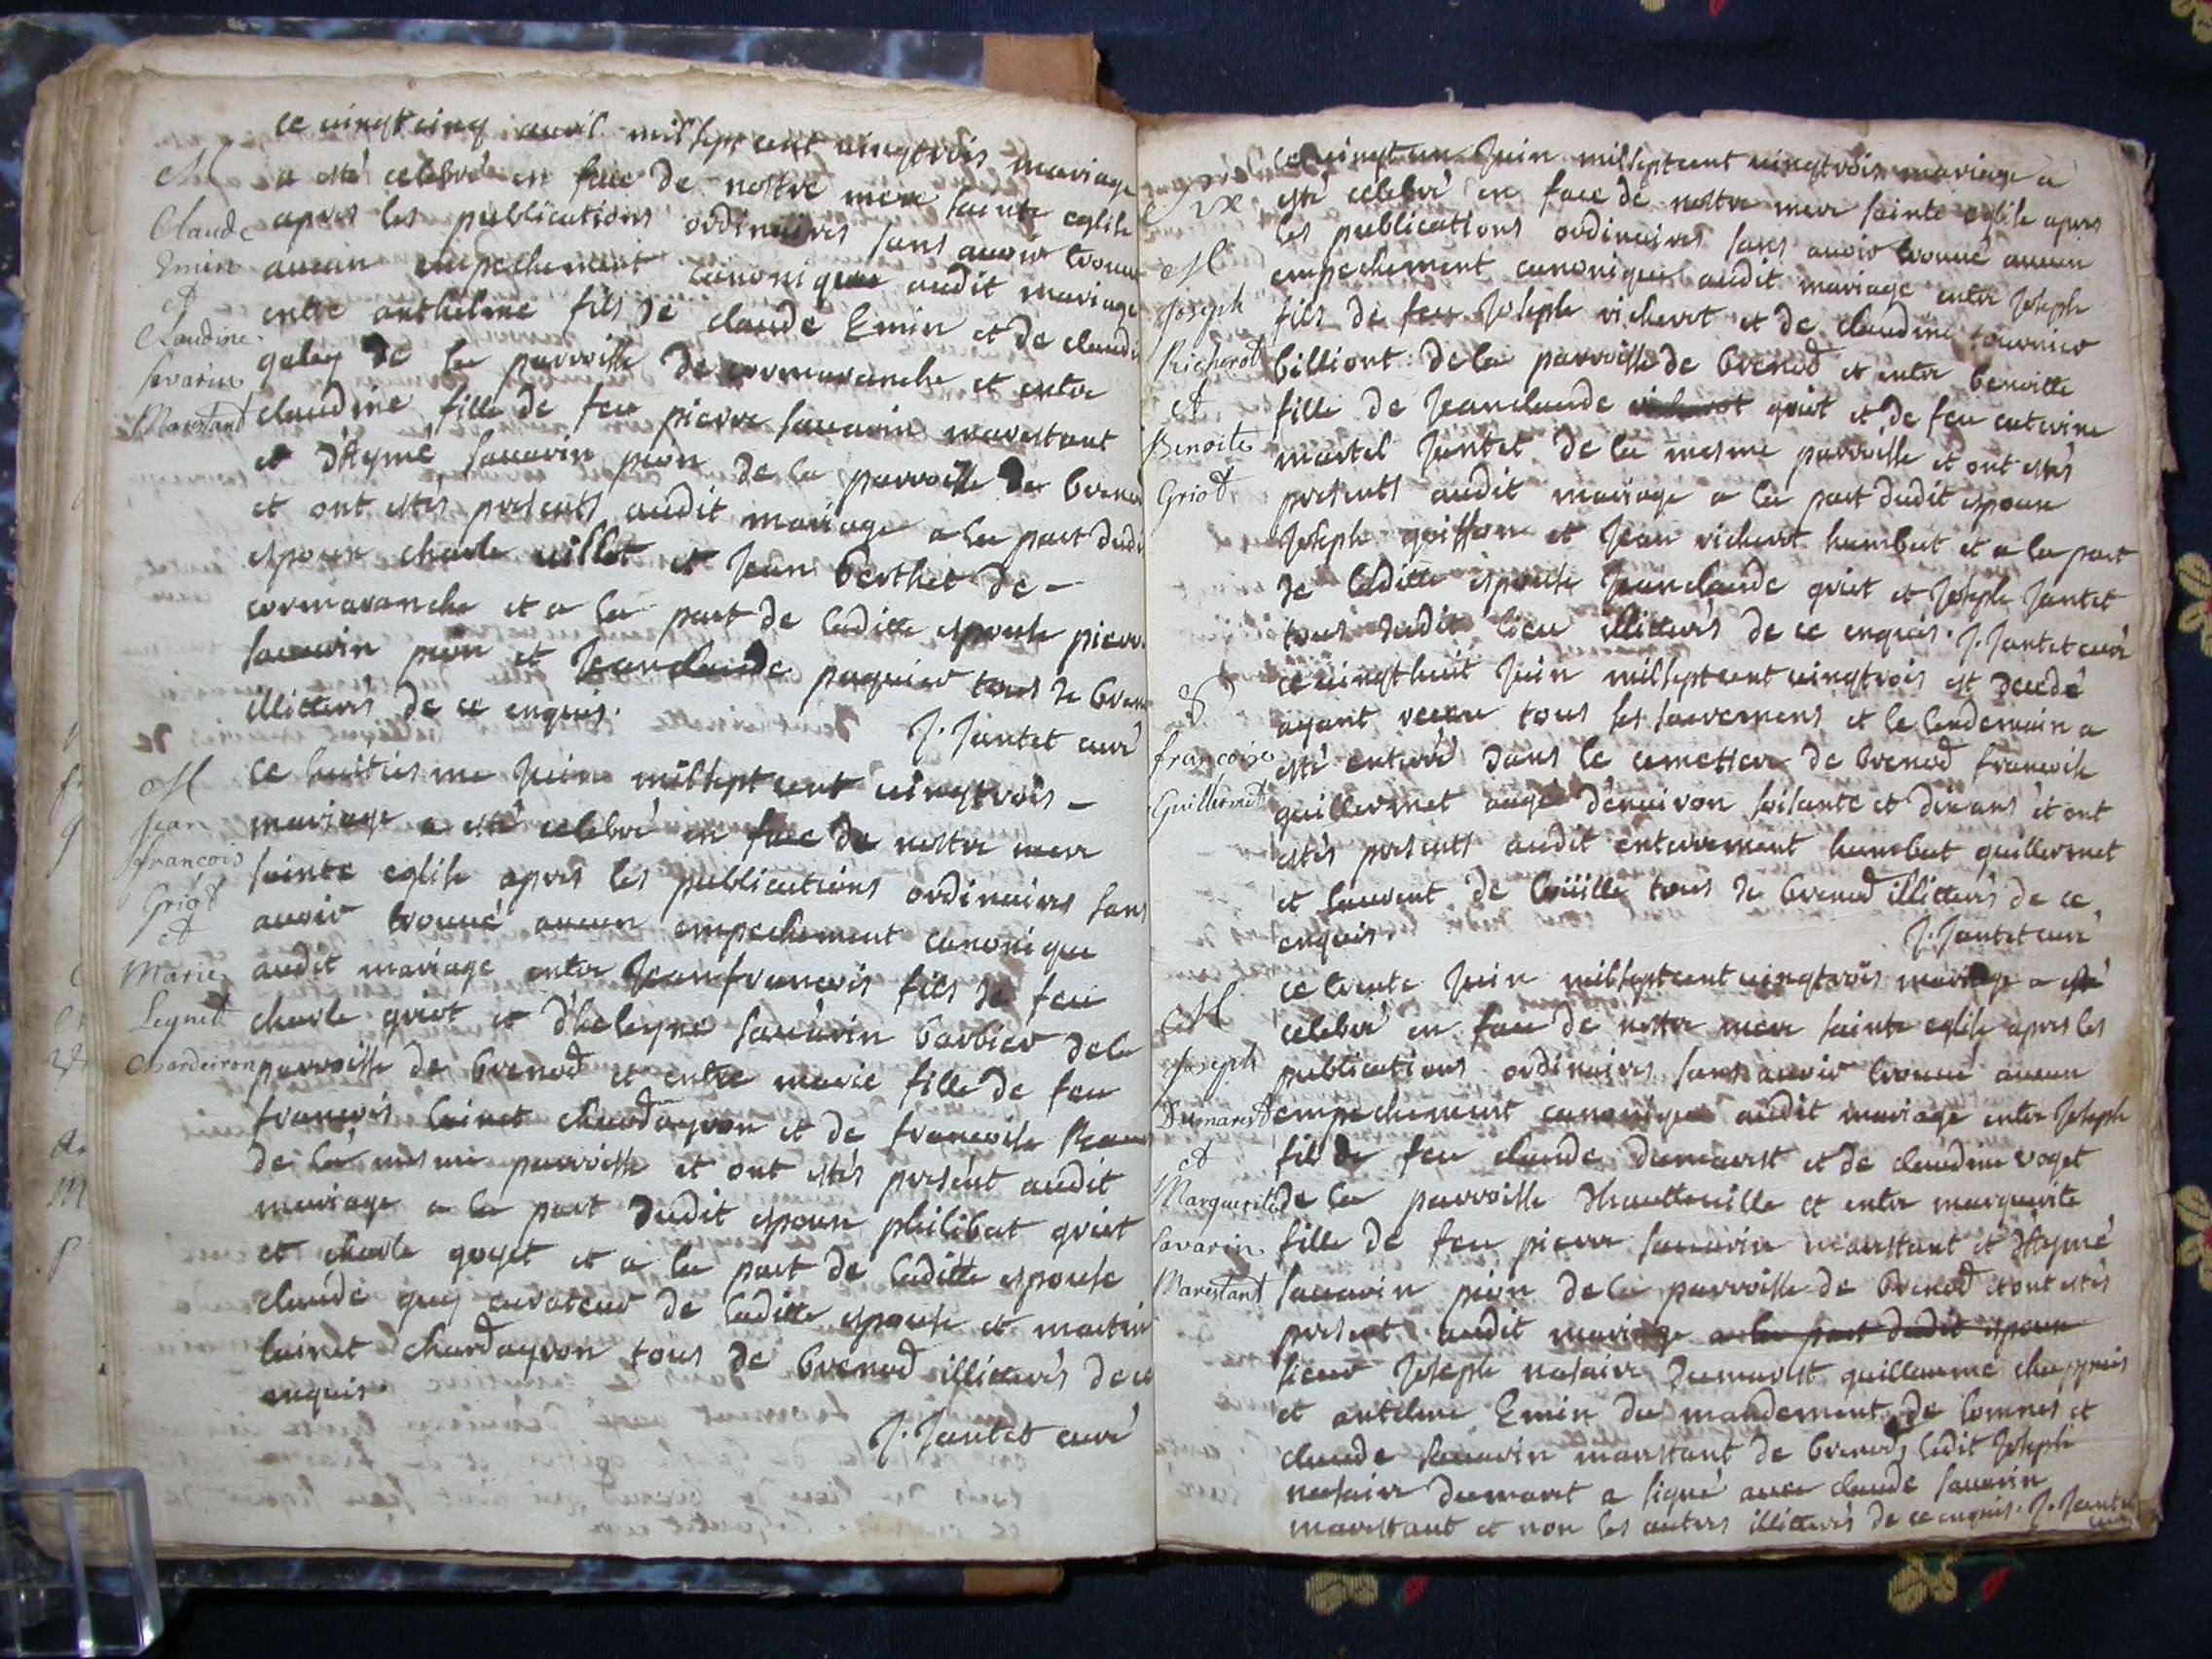 ce uingtcinq auril mil sept cent uingtrois mariage
M a esté celebré en face de nostre mere sainte eglise
Claude apres les publications ordinaires sans auoir trouué
Emin aucun empechement canonique audit mariage
et entre anthelme fils de claude Emin et de claudi
Claudine galey de la parroisse de cormaranche et entre
Savarin
Marestant claudine fille de feu pierre sauarin marestant
et d'Aymé sauarin pion de la parroisse de breno
et ont estés presents audit mariage a la part dudi
espoux charle uillet et Jean berthet de -
cormaranche et a la part de laditte espouse pierre
sauarin pion et Jeanclaude paquier tous de bren
illitterés de ce enquis.
J. Jantet curé
M ce huitiesme Juin mil sept cent uingtrois -
Jean mariage a esté celebré en face de nostre mere
francois sainte eglise apres les publications ordinaires sans
Griot auoir trouué aucun empechement canonique
et
Marie audit mariage entre Jeanfrancois fils de feu
Leynet charle griot et d'heleyne sauarin barbier de la
Chardeiron parroisse de brenod et entre marie fille de feu
francois lainet chardayron et de francoise
de la mesme parroisse et ont estés présent audit
mariage a la part dudit espoux philibat griot
et charle goyet et a la part de laditte espouse
claude guy curateur de laditte espouse et martin
lainet chardayron tous de brenod illitterés de ce
enquis.
J. Jantet curé
ce uingt un Juin mil sept cent uingtrois mariage a
esté celebré en face de nostre mere sainte eglise apres
les publications ordinaires sans auoir trouué aucun
M empechement canonique audit mariage entre Joseph
Joseph fils de feu Joseph richerot et de claudine tournier
Richerot billiont de la parroisse de brenod et entre benoitte
et fille de Jeanclaude griot et de feu caterine
Benoite martel Jantet de la mesme parroisse et ont estés
Griot presents audit mariage a la part dudit espoux
Joseph goiffon et Jean richerot humbat et a la part
de laditte espouse Jeanclaude griot et Joseph Jantet
tous dudit lieu illitterés de ce enquis. J. Jantet curé
ce uingthuit Juin mil sept cent uingtrois est decedé
ayant receu tous ses sacremens et le lendemain a
francoise esté enterré dans le cemettere de brenod francoise
Guillermet guillermet augé d'enuiron soisante et dix ans et ont
estés presents audit enterrement humbat guillermet
et laurent de loüille tous de brenod illitterés de ce
enquis. J. Jantet curé
ce trente Juin mil sept cent uingtrois mariage a esté
M celebré en face de nostre mere sainte eglise apres les
Joseph publications ordinaires sans auoir trouué aucun
Dumarest empechement canonique audit mariage entre Joseph
et fils de feu claude dumarest et de claudine roget
Marguerite de la parroisse d'hautteuille et entre marguerite
Savarin fille de feu pierre sauarin marestant et d'Aymé
Marestant sauarin pion de la parroisse de brenod et ont estés
present audit mariage a la part dudit espoux
sieur Joseph notaire dumarest guillaume chappuis
et antelme Emin du mandement de lomnes et
claude sauarin marestant de brenod ledit Joseph
notaire dumarest a signé auec claude sauarin
marestant et non les autres illitterés de ce enquis. J. Jantet
curé